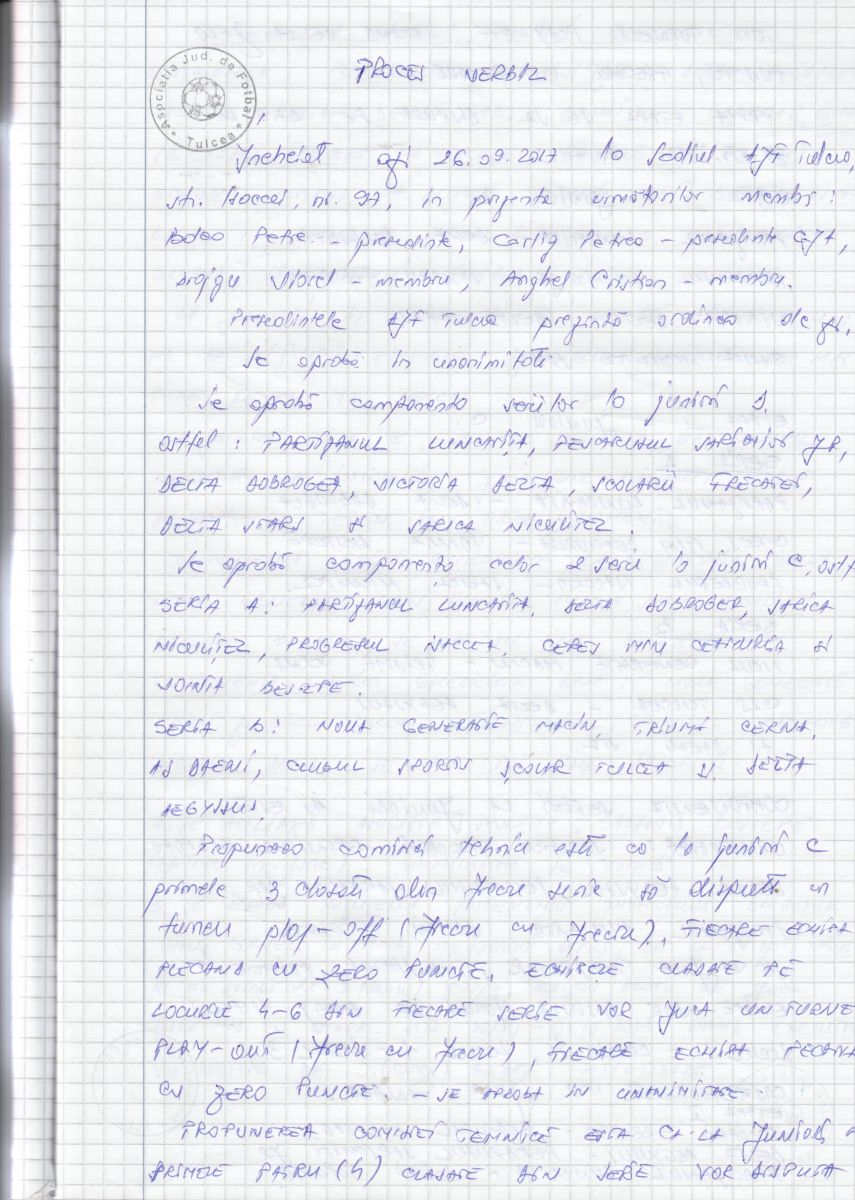 Asociatia Jud. de Fotbal
* Tulcea *
PROCES VERBAL
Incheiat azi 26.09.2017 la sediul AJF Tulcea,
str. Isaccei, nr. 97, in prezenta urmatorilor membri:
Petre - presedinte, Carlig Petrea - presedinte
Viorel - membru, Anghel Cristian - membru.
Presedintele AJF Tulcea prezintă ordinea de zi.
Se aprobă in unanimitate
Se aprobă componenta seriilor la juniori
astfel: PARTIZANUL LUNCAVITA, PESCARUSUL SARICHIOI
DELTA DOBROGEA, VICTORIA DELTA, SCOLARII FRECATEI,
DELTA STARS SI SARICA NICULITEL.
Se aprobă componenta celor 2 serii la juniori C, astf
SERIA A: PARTIZANUL LUNCAVITA, DELTA DOBROGEA, SARICA
NICULIȚEL, PROGRESUL ISACCEA, CERES MIN CEAMURLIA SI
VOINTA BESTEPE.
SERIA B: NOUA GENERATIE MACIN, TRIUMF CERNA,
AS DAENI, CLUBUL SPORTIV ȘCOLAR TULCEA SI DELTA
AEGYSSUS.
Propunerea comisiei tehnice este ca la juniori C
primele 3 clasate din fiecare serie să dispute un
turneu play-off (fiecare cu fiecare), FIECARE ECHIPA
PLECAND CU ZERO PUNCTE, ECHIPELE CLASATE PE
LOCURILE 4-6 DIN FIECARE SERIE VOR JUCA UN TURNEU
PLAY-OUT (fiecare cu fiecare), FIECARE ECHIPA PLECAND
CU ZERO PUNCTE. - SE APROBA IN UNANIMITATE.
PROPUNEREA COMISIEI TEHNICE ESTE CA LA JUNIORI
PRIMELE PATRU (4) CLASATE DIN SERIE VOR DISPUTA